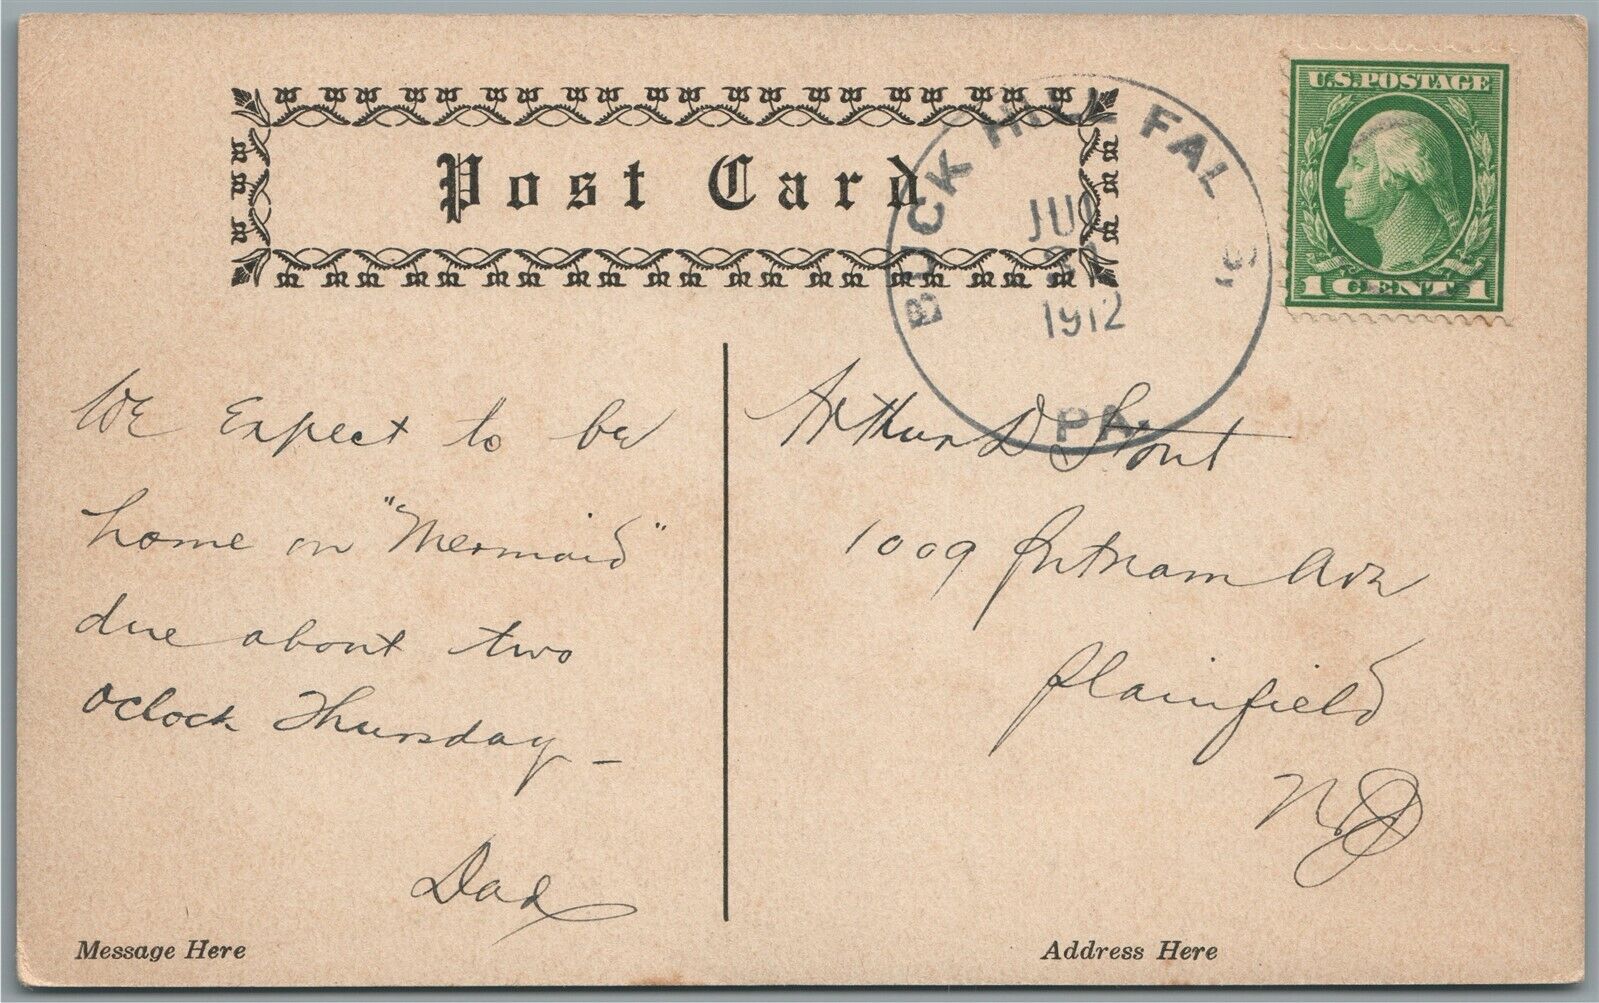 Post Card
BUCK HILL FALLS
JUL
1912
PA.
U.S. POSTAGE
1 CENT 1
We Expect to be
home on "Mermaid"
due about two
oclock Thursday –
Dad
Arthur D Stout
1009 Putnam Ave
Plainfield
N.J.
Message Here
Address Here